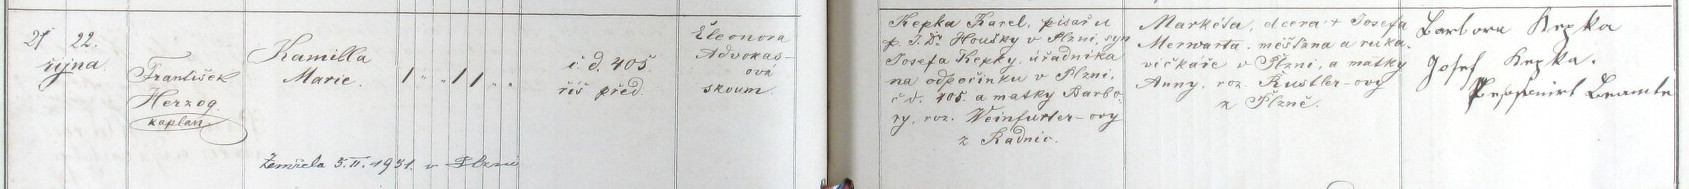 21 22.
října
František
Herzog
kaplan
Kamilla
Marie.
1 " " 1 1 " "
č. d. 405.
říš. před.
Eleonora
Advokás-
ová
zkoum.
Zemřela 5.II.1931. v Plzni
Kepka Karel, písař u
p. J. Dr. Houšky v Plzni, syn
Josefa Kepky, úřadníka
na odpočinku v Plzni,
č. d. 405. a matky Barbo-
ry, roz. Weinfurter-ovy
z Radnic.
Markéta, dcera + Josefa
Merwarta, měšťana a ruka-
vičkáře v Plzni, a matky
Anny, roz. Kustler-ovy
z Plzně.
Barbora Kepka
Josef Kepka.
Pensionirt Beamte